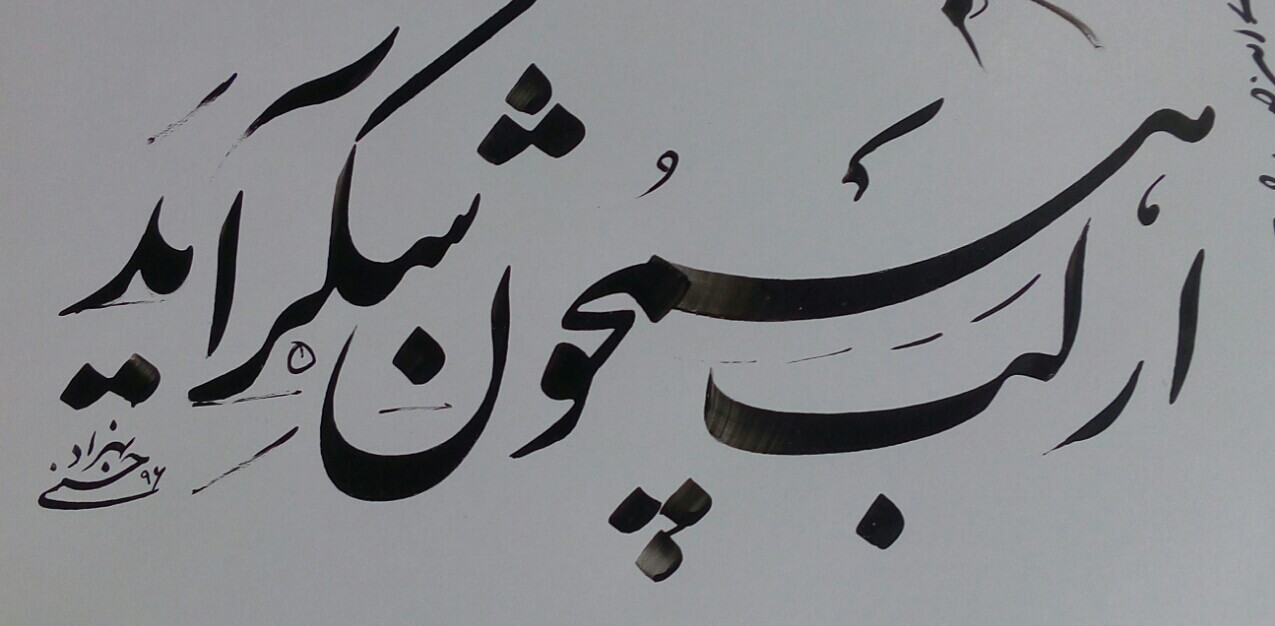 از لب همچون شکر آید
بهزاد
حسنی ۹۶